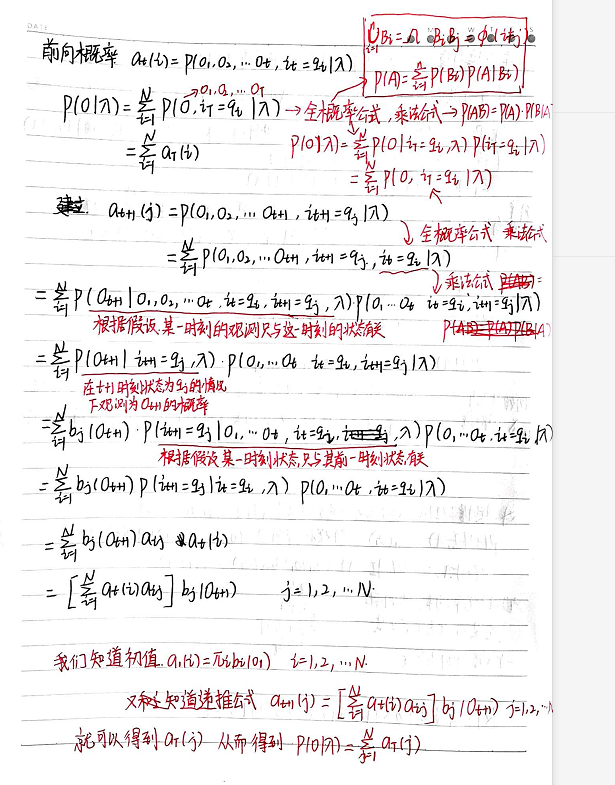 DATE
⋃ᵢ₌₁ⁿ Bᵢ = Ω  BᵢBⱼ = ϕ (i≠j)
前向概率 aₜ(i) = P(o₁,o₂,…oₜ, iₜ=qᵢ|λ)
P(A) = Σᵢ₌₁ⁿ P(Bᵢ)P(A|Bᵢ)
o₁,o₂,…o_T
P(O|λ) = Σᵢ₌₁ᴺ P(O, i_T=qᵢ|λ) → 全概率公式, 乘法公式 → P(AB)=P(A)·P(B|A
= Σᵢ₌₁ᴺ a_T(i)
P(O|λ) = Σᵢ₌₁ᴺ P(O|i_T=qᵢ,λ) P(i_T=qᵢ|λ)
= Σᵢ₌₁ᴺ P(O, i_T=qᵢ|λ)
aₜ₊₁(j) = P(o₁,o₂,…oₜ₊₁, iₜ₊₁=qⱼ|λ)
全概率公式 乘法公式
= Σᵢ₌₁ᴺ P(o₁,o₂,…oₜ₊₁, iₜ₊₁=qⱼ, iₜ=qᵢ|λ)
乘法公式
= Σᵢ₌₁ᴺ P(oₜ₊₁|o₁,o₂,…oₜ, iₜ=qᵢ, iₜ₊₁=qⱼ, λ)·P(o₁…oₜ iₜ=qᵢ, iₜ₊₁=qⱼ|λ)
根据假设,某一时刻的观测只与这一时刻的状态有关
= Σᵢ₌₁ᴺ P(oₜ₊₁|iₜ₊₁=qⱼ,λ)·P(o₁…oₜ iₜ=qᵢ, iₜ₊₁=qⱼ|λ)
在t+1时刻状态为qⱼ的情况
下观测为oₜ₊₁的概率
= Σᵢ₌₁ᴺ bⱼ(oₜ₊₁)·P(iₜ₊₁=qⱼ|o₁,…oₜ, iₜ=qᵢ, λ)P(o₁,…oₜ, iₜ=qᵢ|λ)
根据假设某一时刻状态,只与其前一时刻状态有关
= Σᵢ₌₁ᴺ bⱼ(oₜ₊₁) P(iₜ₊₁=qⱼ|iₜ=qᵢ,λ) P(o₁…oₜ, iₜ=qᵢ|λ)
= Σᵢ₌₁ᴺ bⱼ(oₜ₊₁) aᵢⱼ aₜ(i)
= [Σᵢ₌₁ᴺ aₜ(i)aᵢⱼ] bⱼ(oₜ₊₁)  j=1,2,…N.
我们知道初值. a₁(i)=πᵢbᵢ(o₁)  i=1,2,…N.
知道递推公式 aₜ₊₁(j) = [Σᵢ₌₁ᴺ aₜ(i)aᵢⱼ] bⱼ(oₜ₊₁) j=1,2,…N
就可以得到 a_T(j) 从而得到 P(O|λ)=Σⱼ₌₁ᴺ a_T(j)